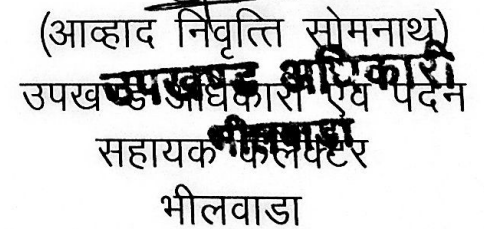 (आव्हाद निवृत्ति सोमनाथ)
उपखण्ड अधिकारी
उपखण्ड अधिकारी एवं पदेन
भीलवाडा
सहायक कलक्टर
भीलवाडा